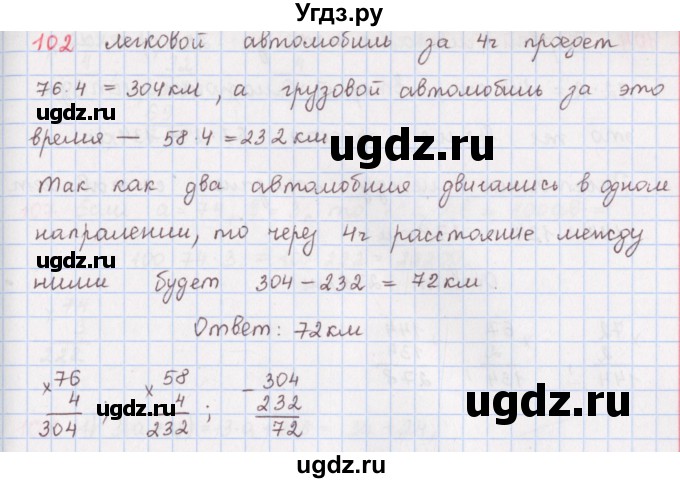 Угдз.ру
102 Легковой автомобиль за 4г проедет
76·4 = 304 км, а грузовой автомобиль за это
ugdz.ru
время — 58·4 = 232 км
ugdz.ru
Так как два автомобиля двигались в одном
ugdz.ru
напралении, то через 4г расстояние между
ними будет 304 - 232 = 72 км.
ugdz.ru
Ответ: 72 км
× 76 × 58 - 304
4 ; 4 ; 232
ugdz.ru ugdz.ru
304 232 72
ugdz.ru